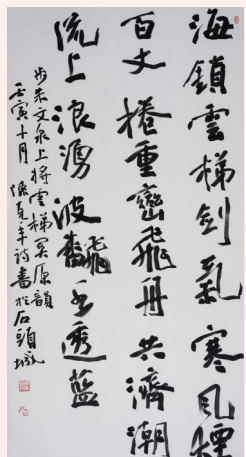 海鎖雲梯劍氣寒風標
百丈捲重巒飛舟共濟潮
流上浪湧波飜玉透藍
步朱文泉上將雲梯原韻
壬寅十月陳克年詩書於石頭城